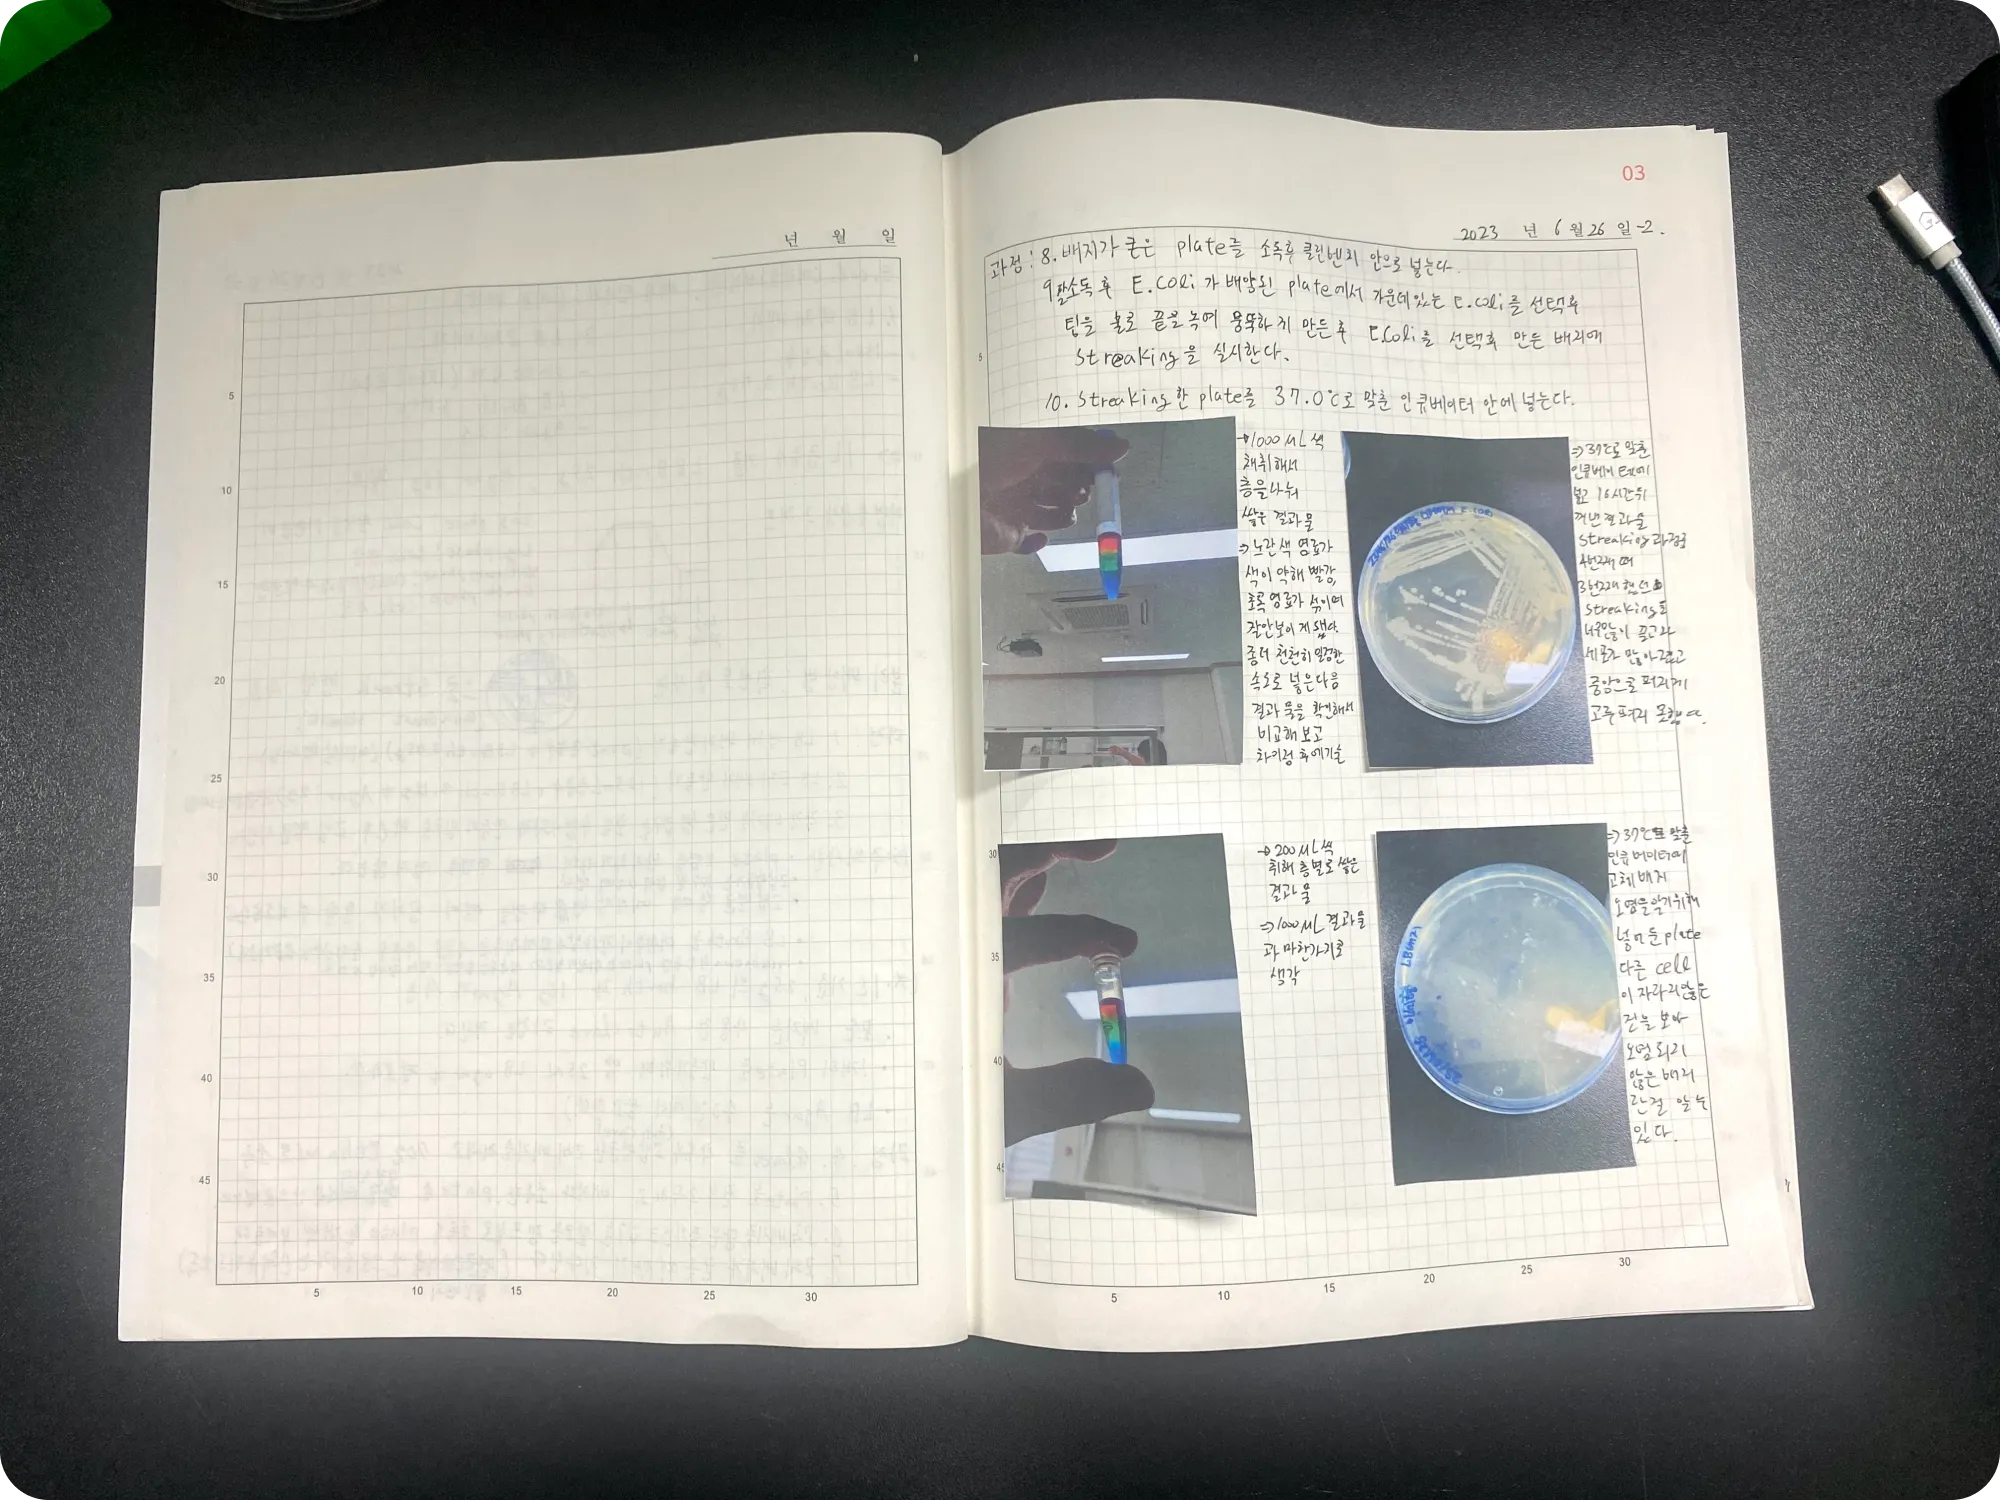 년 월 일
5
10
15
20
25
30
35
40
45
5 10 15 20 25 30
03
2023 년 6 월 26 일 -2.
과정 : 8. 배지가 굳은 plate를 소독후 클린벤치 안으로 넣는다.
9 팔소독 후 E.coli가 배양된 plate에서 가운데있는 E.coli를 선택후
팁을 불로 끝을 녹여 뭉뚝하게 만든 후 E.coli를 선택후 만든 배지에
streaking을 실시한다.
10. Streaking한 plate를 37.0℃로 맞춘 인큐베이터 안에 넣는다.
→1000 μL씩
채취해서
층을나눠
쌓은 결과물
⇒노란색 염료가
색이 약해 빨강,
초록염료가 섞이며
잘안보이게 됐다.
좀더 천천히 일정한
속도로 넣은다음
결과물을 확인해서
비교해보고
차이점 후에기술
⇒37℃로 맞춘
인큐베이터에
넣고 16시간뒤
꺼낸결과물
streaking과정중
4번째때
3번째했던
streaking을
너무많이 긋고가
세포가 많이
중앙으로 퍼지게
고루 펴지 못했다.
→200 μL씩
취해 층별로 쌓은
결과물
⇒1000 μL 결과물
과 마찬가지로
생각
⇒37℃로 맞춘
인큐베이터에
고체배지
오염을알기위해
넣어둔plate
다른 cell
이 자라지않은
것을 보아
오염되지
않은배지
란걸 알 수
있다.
5
30
35
40
45
5 10 15 20 25 30